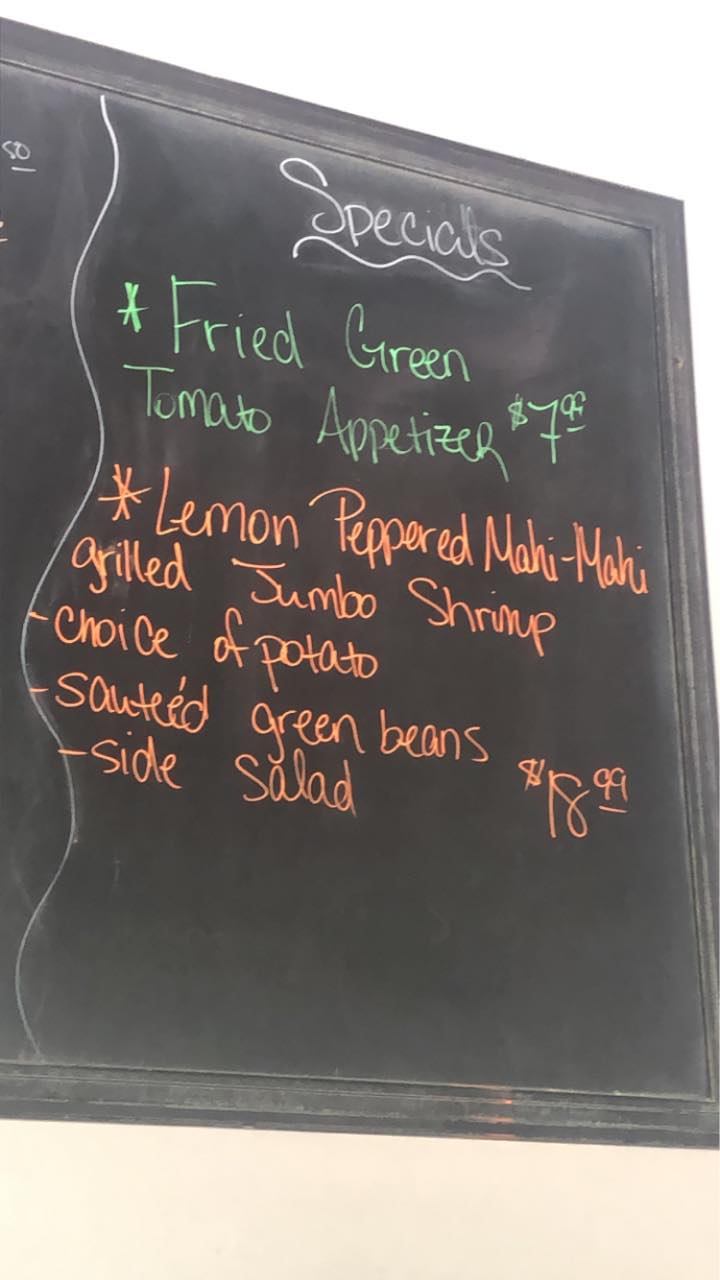 50
Specials
* Fried Green
Tomato Appetizer $7.99
* Lemon Peppered Mahi-Mahi
grilled Jumbo Shrimp
- choice of potato
- sauteéd green beans
- side salad $18.99